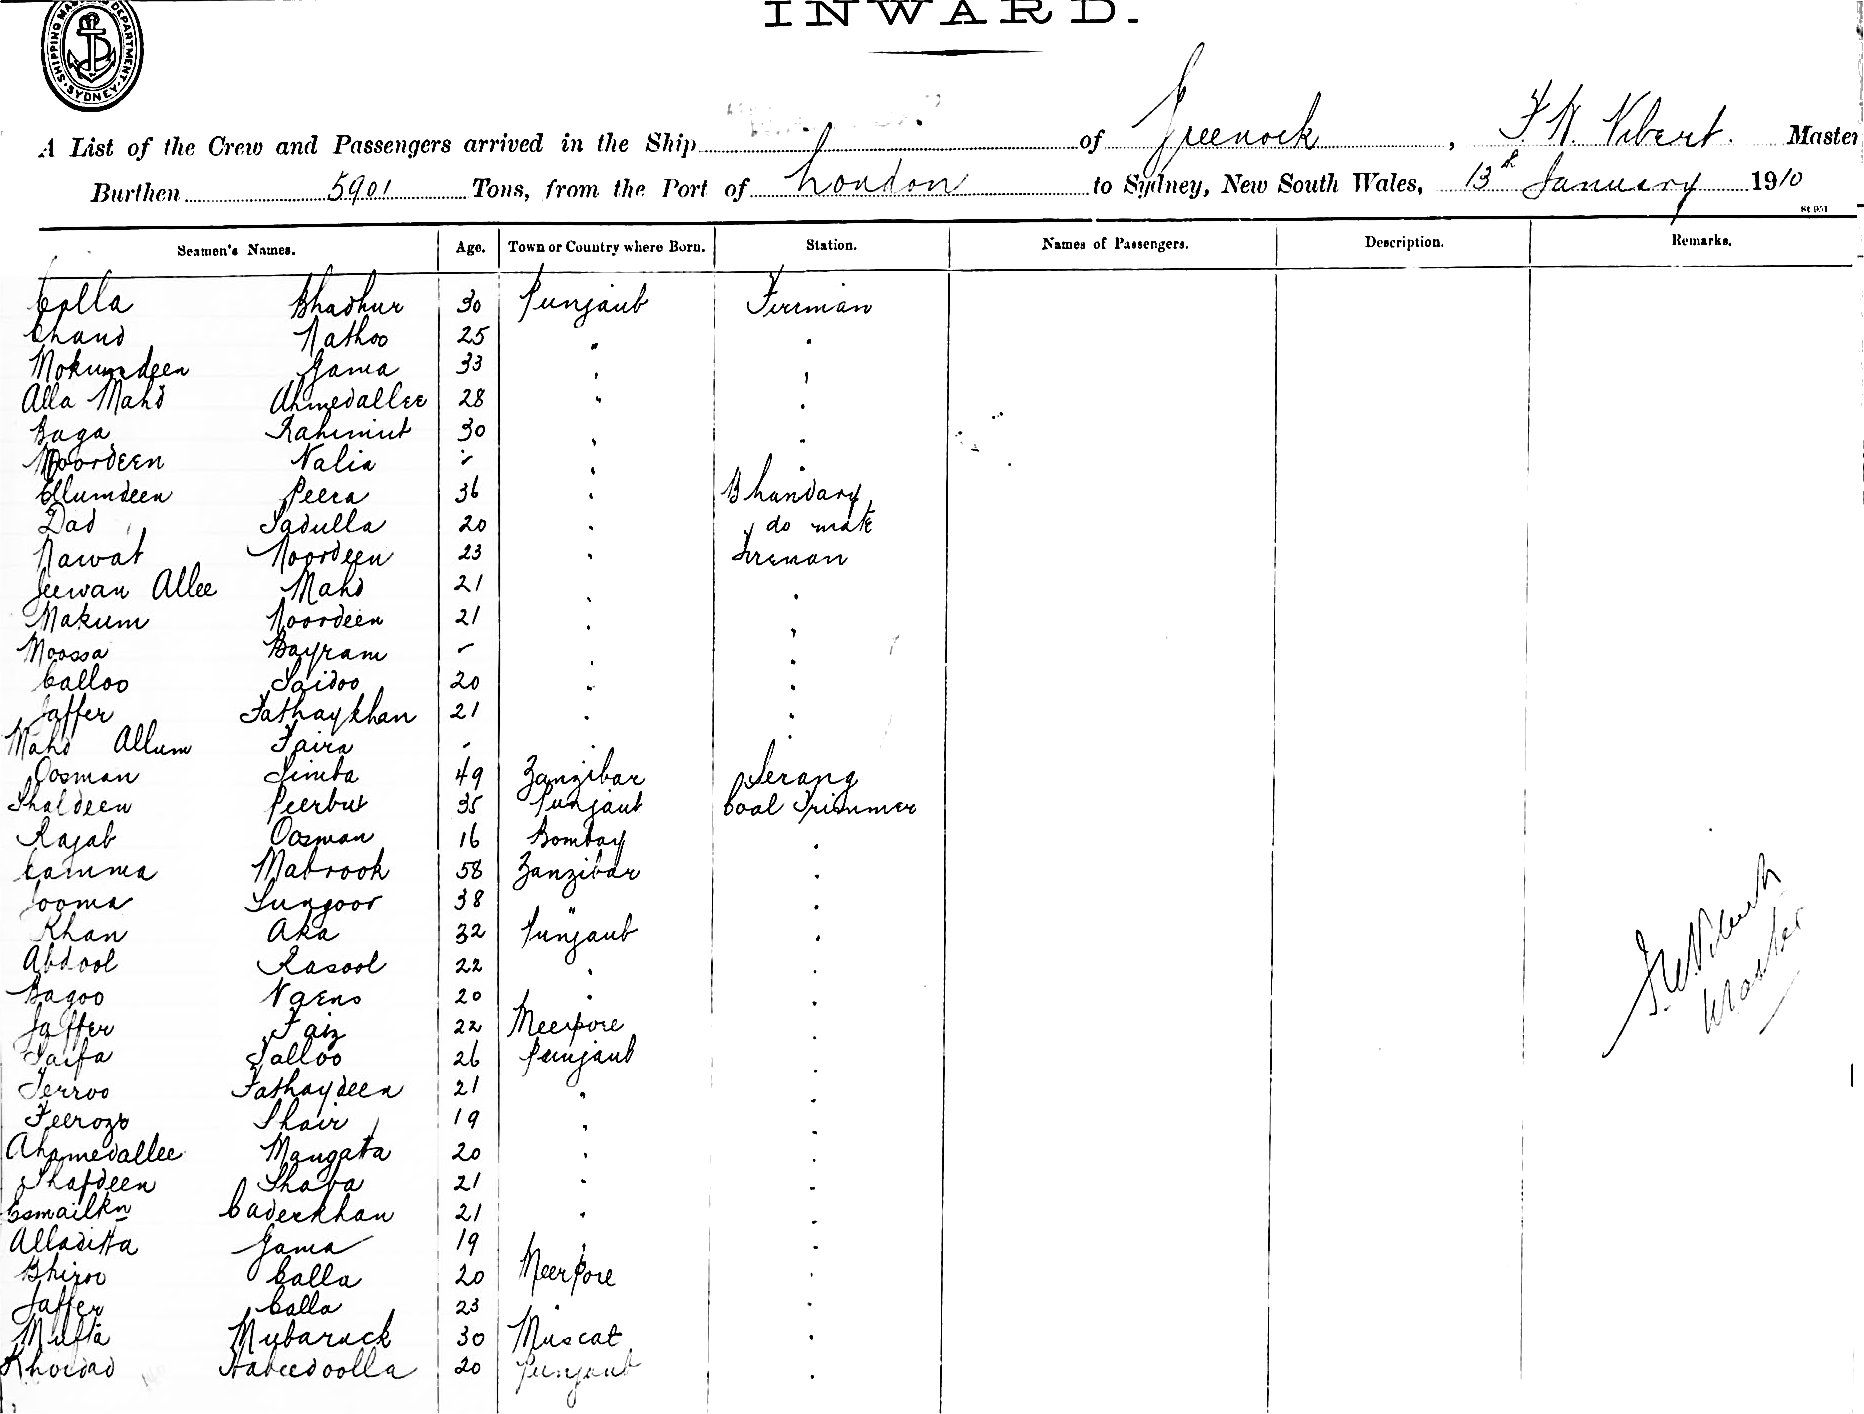 INWARD.
SHIPPING MASTERS DEPARTMENT. SYDNEY
A List of the Crew and Passengers arrived in the Ship of Greenock, F. N. Vibert. Master
Burthen 5901 Tons, from the Port of London to Sydney, New South Wales, 13th January 1910
Seamen's Names. Age. Town or Country where Born. Station. Names of Passengers. Description. Remarks.
Calla Bhadhur 30 Punjaub Fireman
Chand Nathoo 25 " "
Mokumdeen Gama 33 " "
Alla Mahd Ahmedallee 28 " "
Baga Rahimut 30 " "
Noordeen Valia - " "
Ellumdeen Peera 36 " Bhandary
Dad Sadulla 20 " do mate
Nawat Noordeen 23 " Fireman
Jeewan Allee Mahd 21 " "
Makum Noordeen 21 " "
Moossa Bayram - " "
Calloo Saidoo 20 " "
Jaffer Fathaykhan 21 " "
Mahd Allum Faira - " "
Oosman Simba 49 Zanzibar Serang
Shaldeen Peerbut 35 Punjaub Coal Trimmer
Rajab Oosman 16 Bombay "
Camma Mabrook 58 Zanzibar "
Jooma Sungoor 38 " "
Khan Aka 32 Punjaub "
Abdool Rasool 22 " "
Bagoo 20 " "
Jaffer Faiz 22 Meerpore "
Saifa Salloo 26 Punjaub "
Serroo Fathaydeen 21 " "
Feeroze Shair 19 " "
Ahamedallee Mangata 20 " "
Shafdeen Shaba 21 " "
Esmailkn Caderkhan 21 " "
Alladitta Gama 19 " "
Bhiroo Calla 20 Meerpore "
Jaffer Calla 23 " "
Mufta Mubaruck 30 Muscat "
Khoedad Habeedoolla 20 Punjaub "
Master